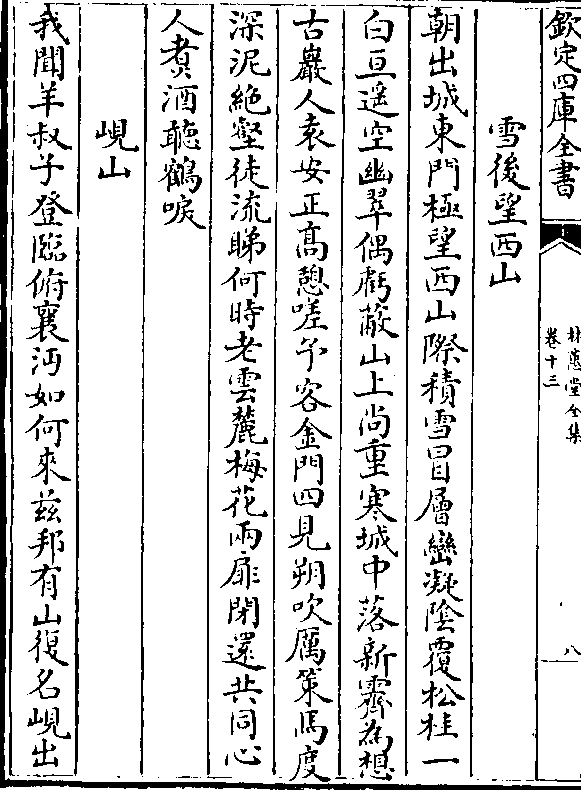 欽定四庫全書
林蕙堂全集
卷十三
八
雪後望西山
朝出城東門極望西山際積雪冒層巒凝陰覆松桂一
白亘遥空幽翠偶虧蔽山上尚重寒城中落新霽為想
古巖人袁安正髙憩嗟予客金門四見朔吹厲策馬度
深泥絶壑徒流睇何時老雲麓梅花兩扉閉還共同心
人煮酒聽鶴唳
峴山
我聞羊叔子登臨俯襄沔如何來兹邦有山復名峴出